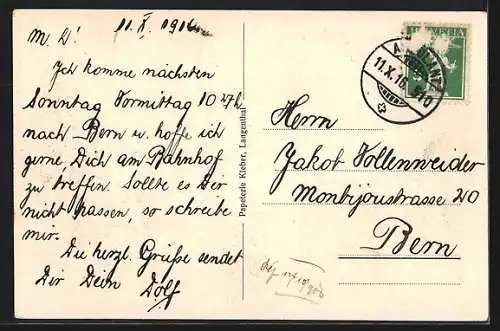 11. X. 1916
M. L!
Ich komme nächsten
Sonntag Vormittag 10
nach Bern u. hoffe ich
gerne, Dich am Bahnhof
zu treffen. Sollte es Dir
nicht passen, so schreibe
mir.
Die herzl. Grüße sendet
Dir Dein Dölf
Papeterie Kleber, Langenthal
HELVETIA
11.X.16
Herrn
Jakob Vollenweider
Monbijoustrasse 20
Bern